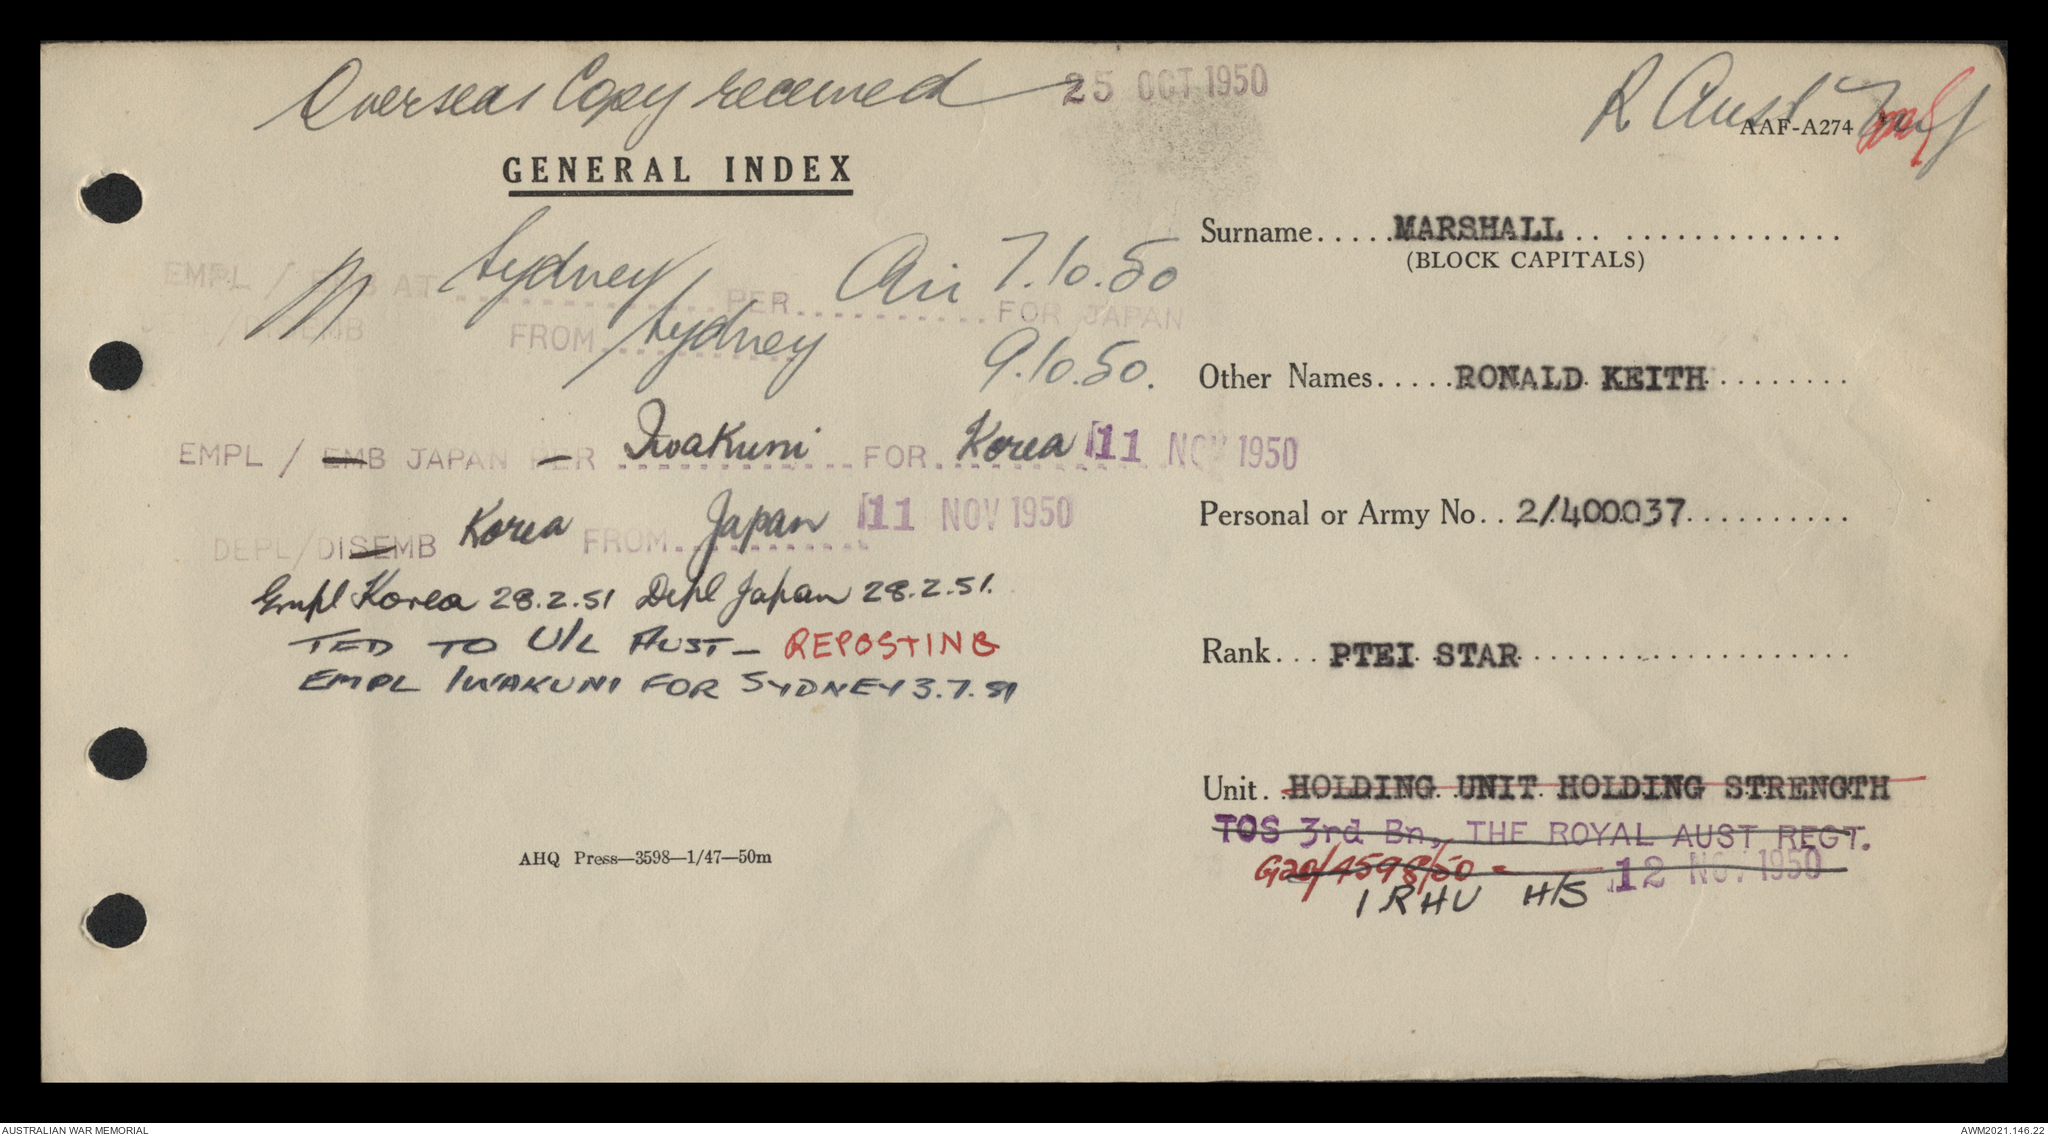 Overseas Copy received 25 OCT 1950
R Aust Inf
AAF-A274
GENERAL INDEX
EMPL / EMB AT Sydney PER Air 7.10.50 FOR JAPAN
DEPL/DISEMB FROM Sydney 9.10.50.
EMPL / EMB JAPAN PER Iwakuni FOR Korea 11 NOV 1950
DEPL/DISEMB Korea FROM Japan 11 NOV 1950
Empl Korea 28.2.51 Depl Japan 28.2.51.
TED TO U/L AUST - REPOSTING
EMPL IWAKUNI FOR SYDNEY 3.7.51
AHQ Press—3598—1/47—50m
Surname.....MARSHALL.. ..............
(BLOCK CAPITALS)
Other Names.....RONALD KEITH........
Personal or Army No...2/400037..........
Rank... PTEI STAR...................
Unit.. HOLDING UNIT HOLDING STRENGTH
TOS 3rd Bn, THE ROYAL AUST REGT.
G20/4598/50 - 12 NOV 1950
1 RHU H/S
AUSTRALIAN WAR MEMORIAL
AWM2021.146.22